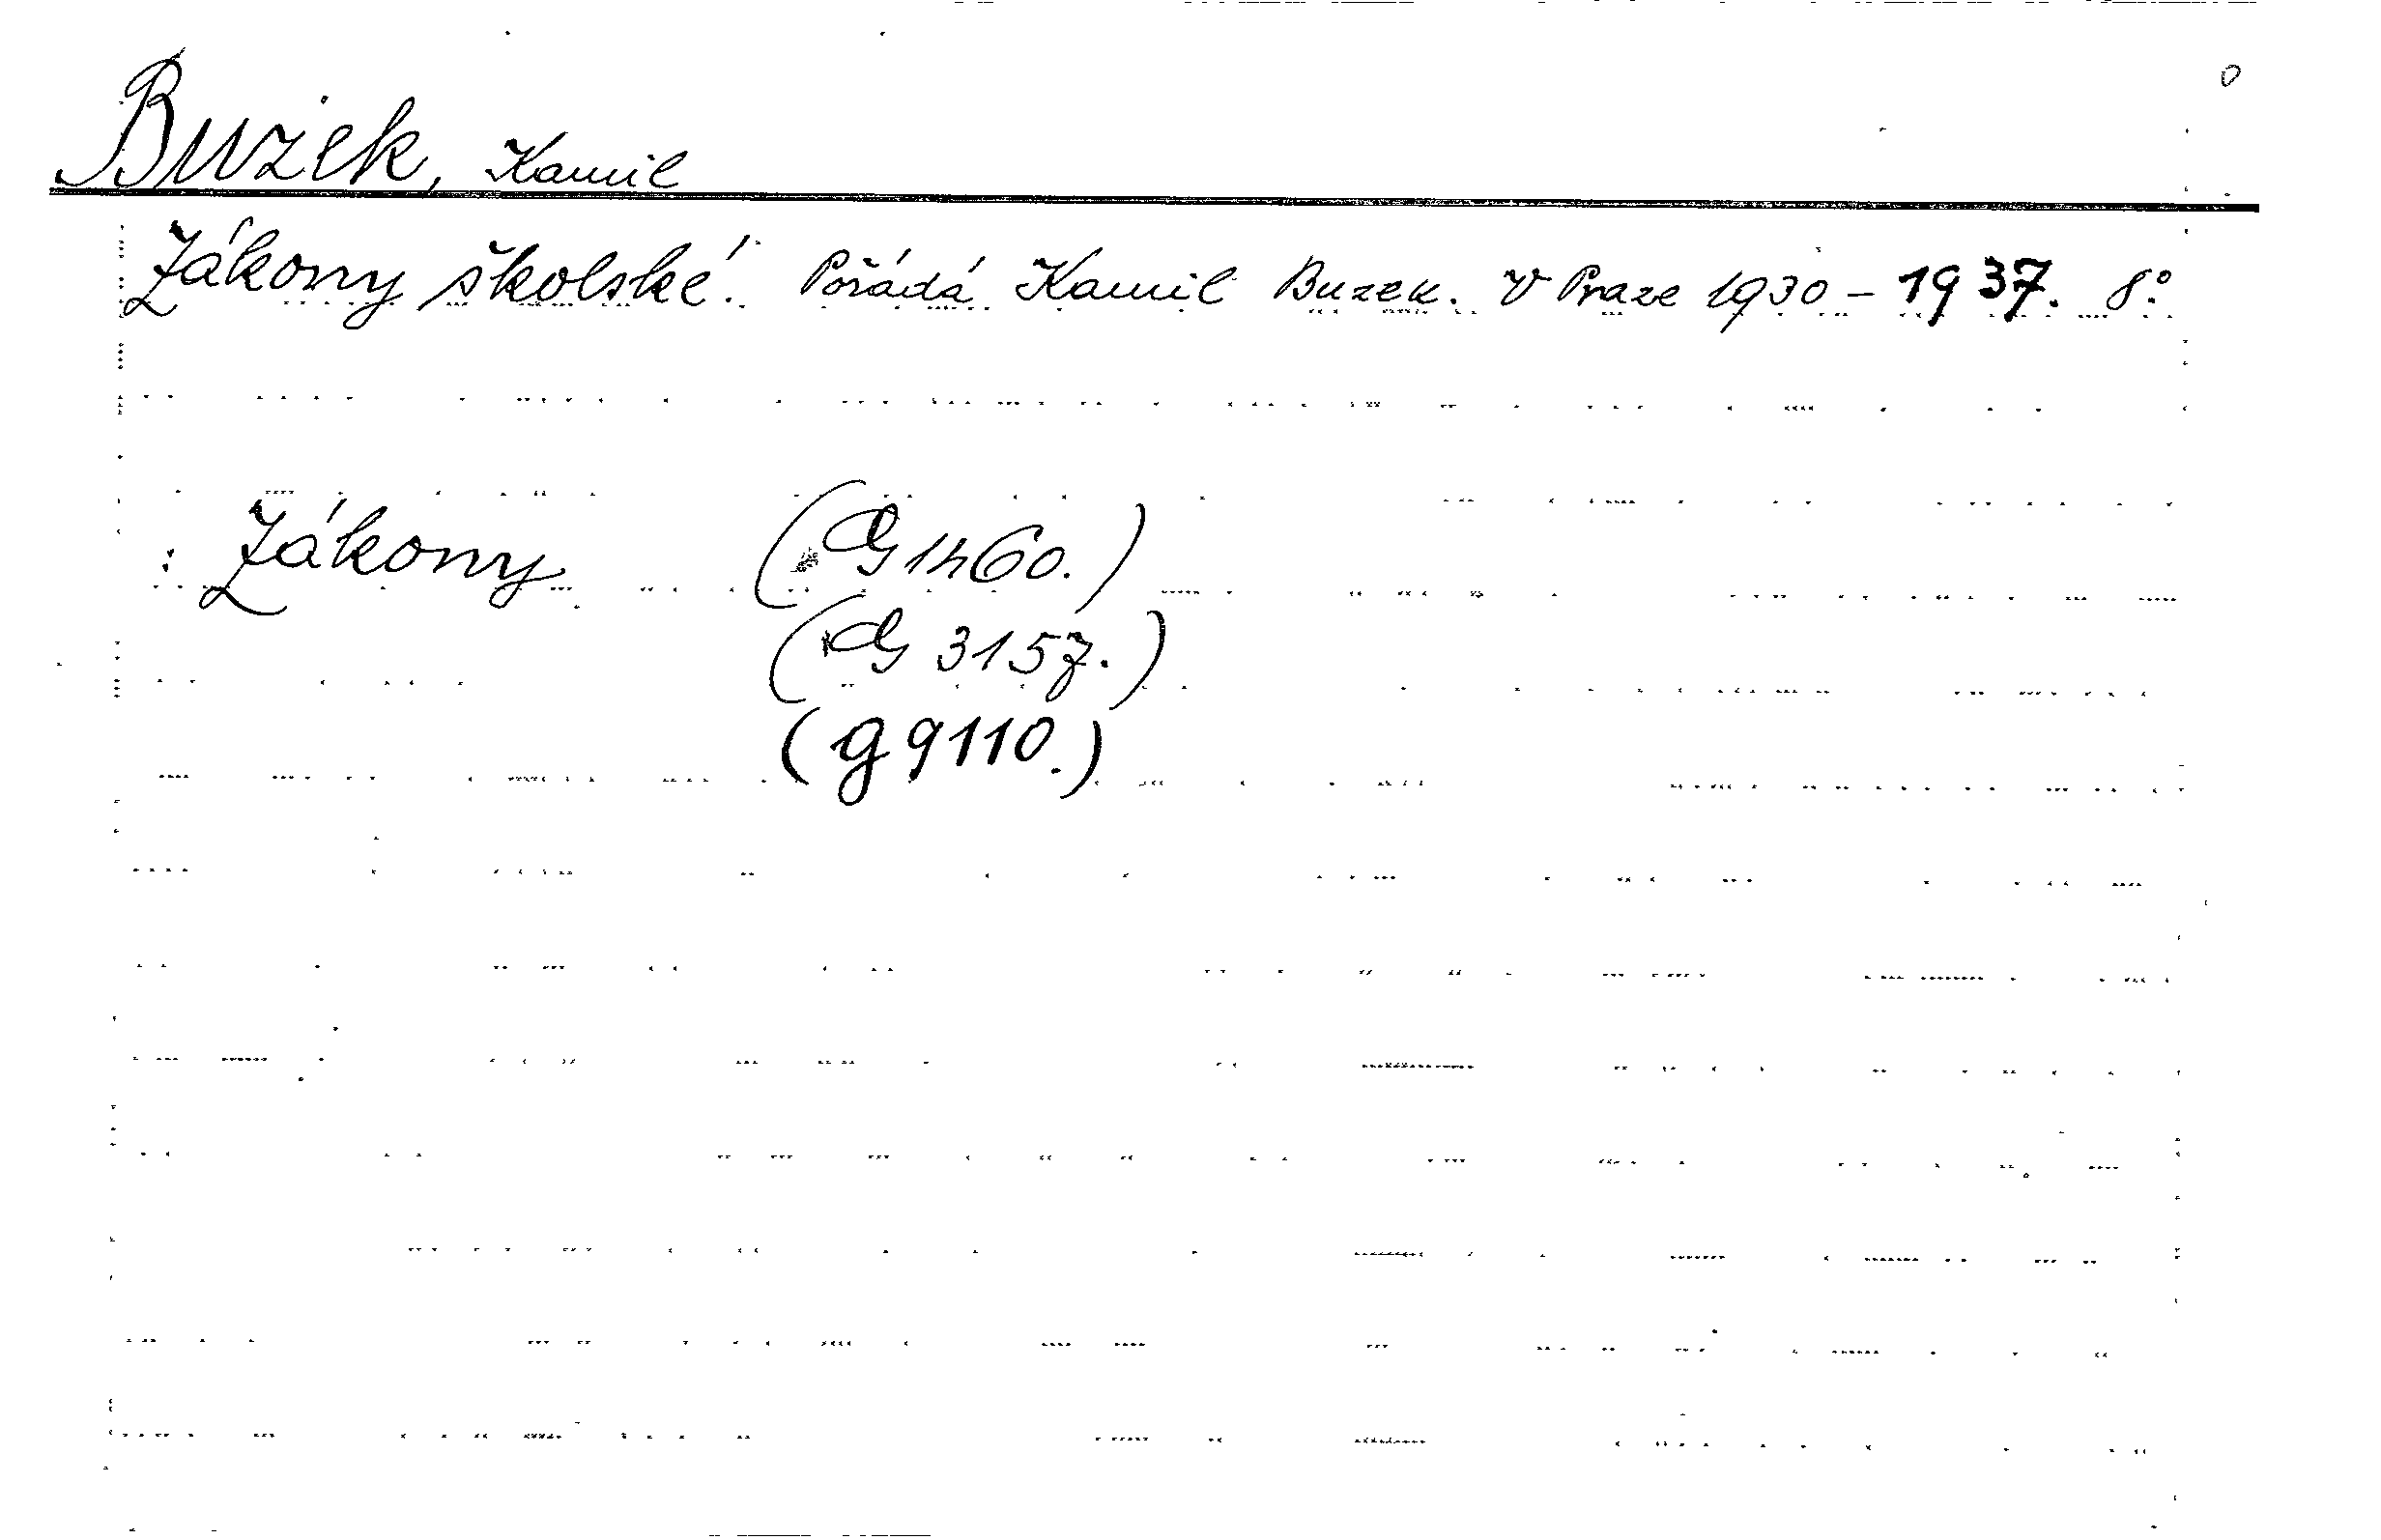 Buzek, Kamil
Zákony školské. Pořádá Kamil Buzek. V Praze 1930-1937. 8°.
: Zákony (G 1460.)
(G 3157.)
(g 9110.)